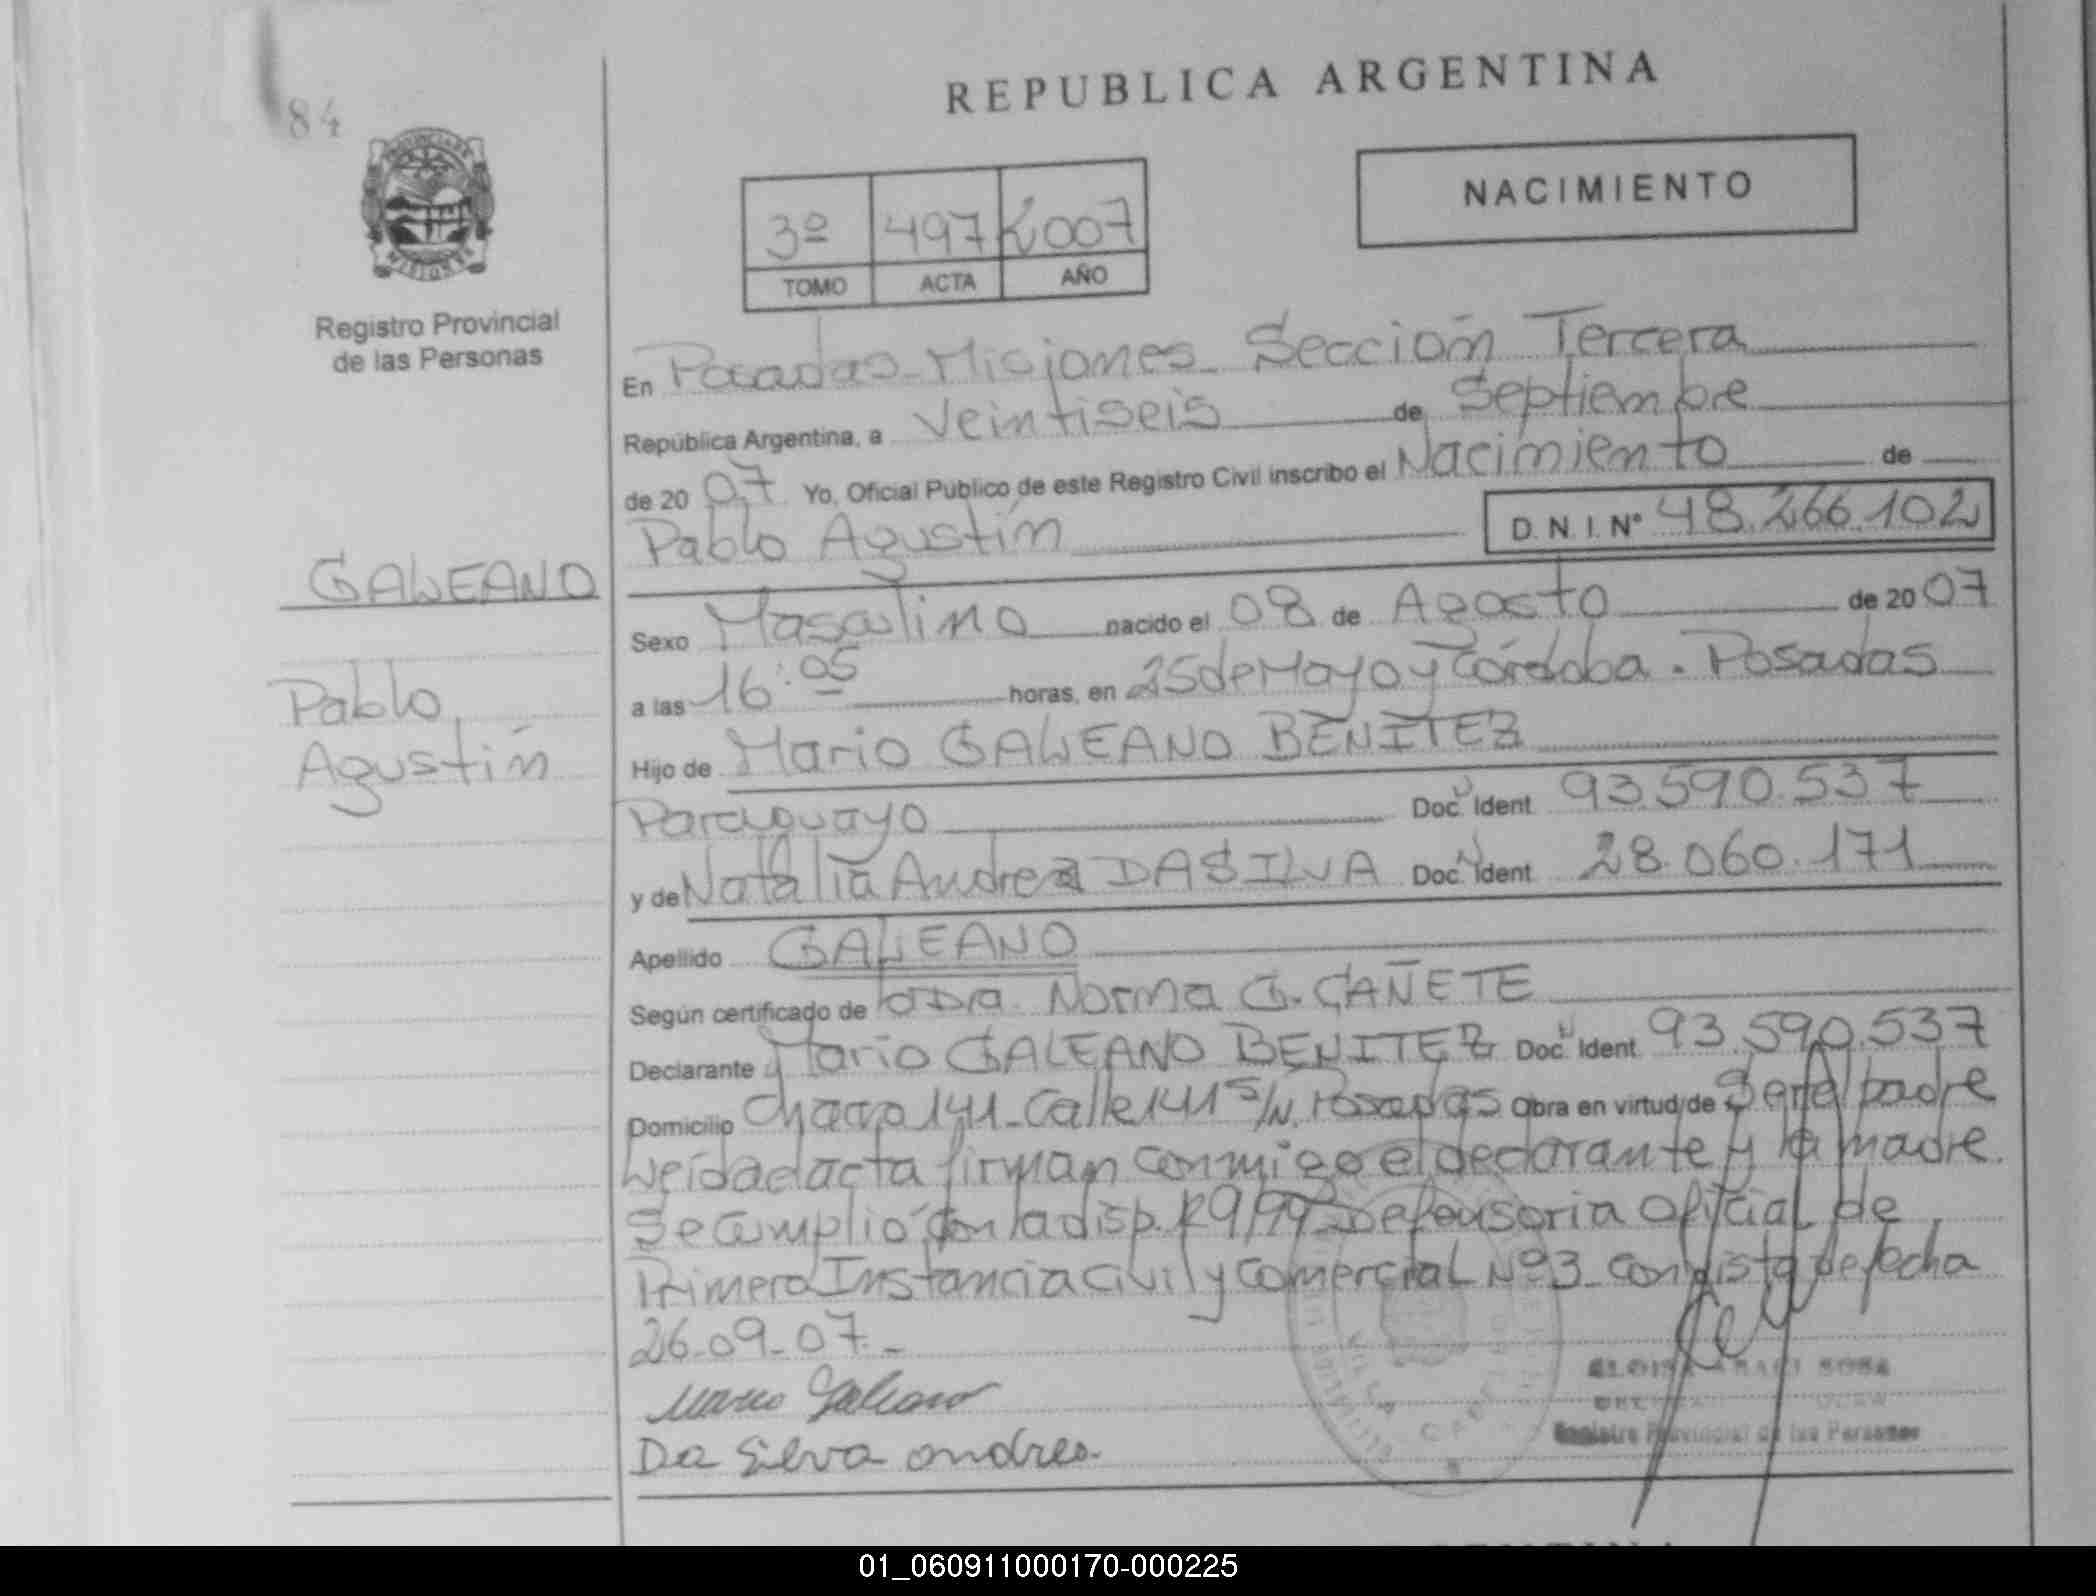 84
REPUBLICA ARGENTINA
NACIMIENTO
3º 497 2007
TOMO ACTA AÑO
MISIONES
Registro Provincial
de las Personas
En Posadas-Misiones Sección Tercera
República Argentina, a Veintiseis de Septiembre
de 2007 Yo, Oficial Público de este Registro Civil inscribo el Nacimiento de
Pablo Agustín D. N. I. Nº 48.266.102
GALEANO
Pablo
Agustín
Sexo Masculino nacido el 08 de Agosto de 2007
a las 16:05 horas, en 25 de Mayo y Córdoba. Posadas
Hijo de Mario GALEANO BENITEZ
Paraguayo Doc. Ident 93.590.537
y de Natalia Andrea DA SILVA Doc. Ident 28.060.171
Apellido GALEANO
Según certificado de la Dra. Norma G. CAÑETE
Declarante Mario GALEANO BENITEZ Doc. Ident 93.590.537
Domicilio Chacra 141-Calle 141 S/N. Posadas Obra en virtud de Ser el padre
Leída el acta firman conmigo el declarante y la madre.
Se cumplió con la disp. 29/99 Defensoria Oficial de
Primera Instancia Civil y Comercial Nº3 con vista de fecha
26-09-07.-
Mario Galeano
Da Silva andrea.
SOSA
Registro Provincial de las Personas
01_060911000170-000225